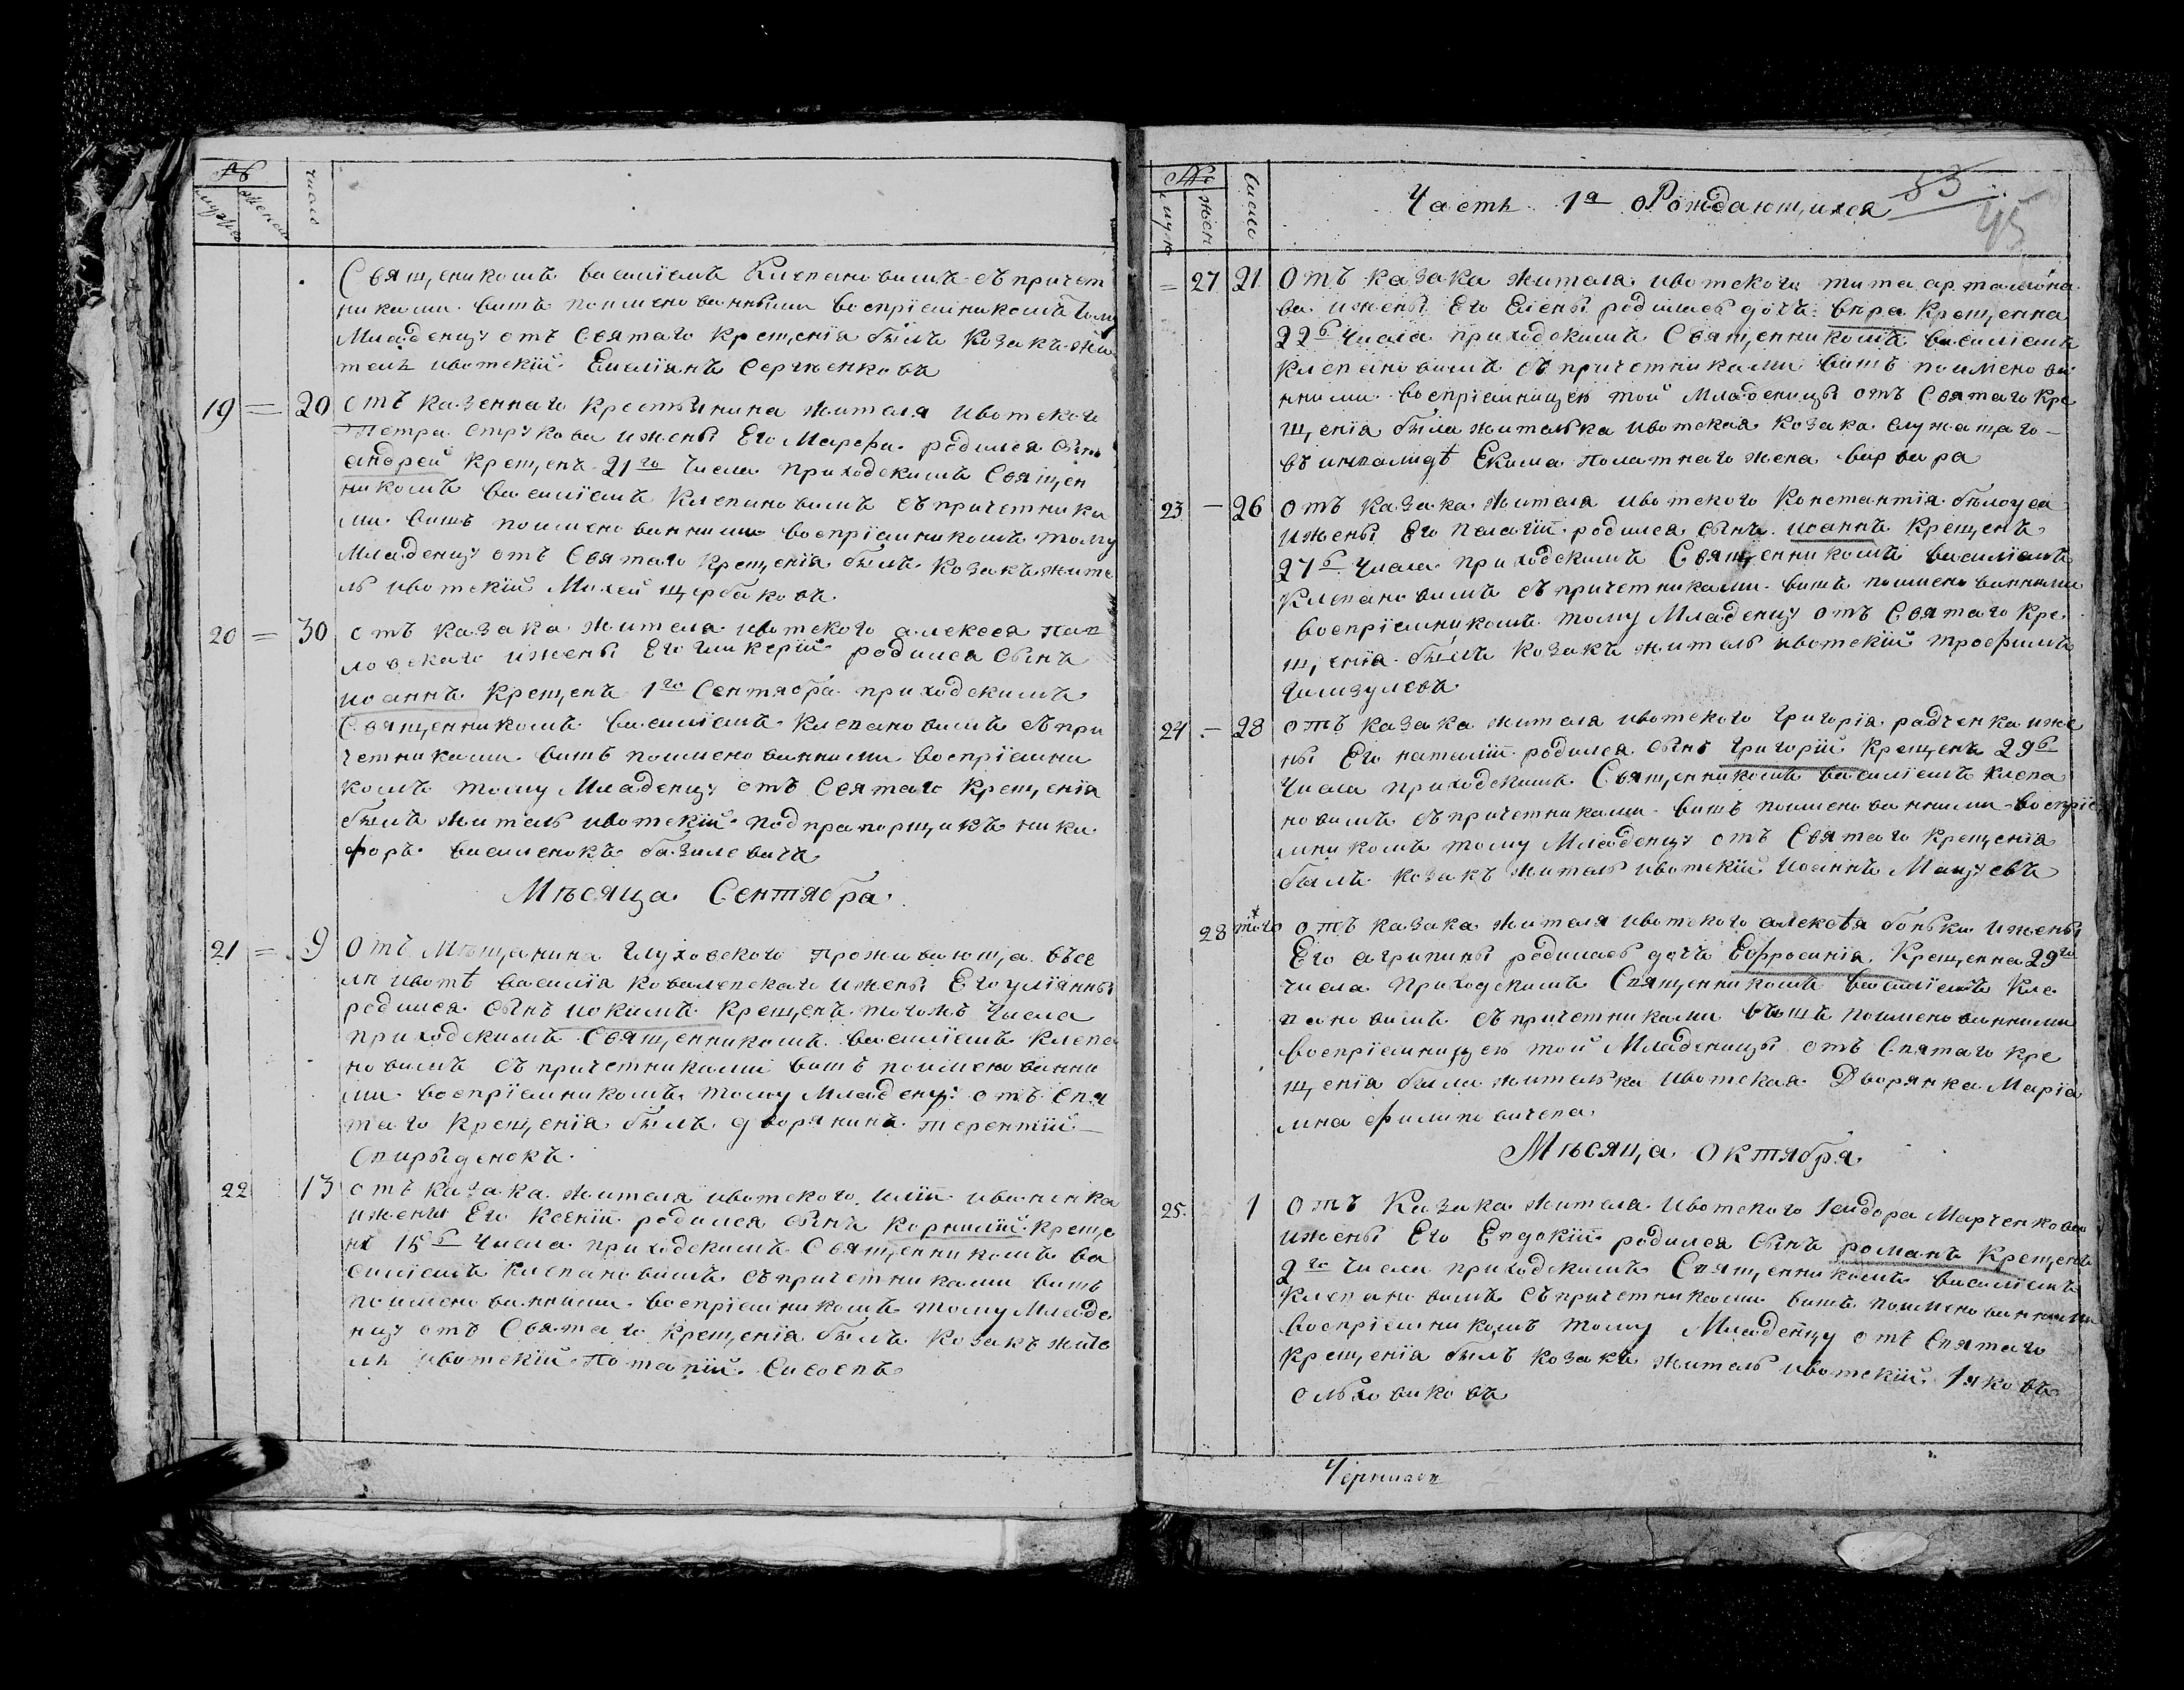 №
мужес
женск
число
Священикомъ василіемъ Клепановимъ съ причет
никами више поименованными воспріемникомъ тому
Младенцу отъ Святаго Крещенія билъ Козакъ жи
тель ивотскій Емеліянъ Сергѣенковъ
19 = 20 отъ казеннаго Крестьянина жителя ивотского
Петра струкова и жены Его Марѳы родился сынъ
андрей Крещенъ 21го числа приходскимъ Священ
никомъ василіемъ Клепановимъ съ причетника
ми више поименованними воспріемникомъ тому
Младенцу отъ Святаго Крещенія билъ Козакъ жите
ль ивотскій Михей щербаковъ
20 = 30 отъ казака жителя ивотского алексея пав
ловскаго и жены Его гликеріи родился Сынъ
иоаннъ Крещенъ 1го Сентября приходскимъ
Священникомъ василіемъ Клепановимъ съ при
четниками више поименованними воспріемни
комъ тому Младенцу отъ Святаго Крещенія
билъ житель ивотскій подпрапорщикъ ники
форъ василенокъ базилевичъ
Мѣсяца Сентября
21 = 9 Отъ Мѣщанина глуховского проживающа въ се
лѣ ивотѣ василія ковалевскаго и жены Его уліянны
родился сынъ иокимъ Крещенъ тогожъ числа
приходскимъ Священникомъ василіемъ Клепа
новимъ съ причетниками више поименованни
ми воспріемникомъ тому Младенцу отъ Свя
таго Крещенія билъ дворянинъ терентій
Спирыденокъ
22 13 отъ казака жителя ивотского иліи иваненка
и жены Его Ксеніи родился сынъ Корнилій Креще
нъ 15го числа приходскимъ Священникомъ ва
силіемъ Клепановимъ съ причетниками више
поименованними воспріемникомъ тому Младе
нцу отъ Святаго Крещенія билъ Козакъ жите
ль ивотскій Потапій Сисоевъ
№
мужс
жен
число
Часть 1я О Рождающихся
53
45
= 27 21 Отъ казака жителя ивотского тита артамоно
ва и жены Его Елены родилась дочь вѣра Крещенна
22го числа приходскимъ Священникомъ василіемъ
Клепановимъ съ причетниками више поименова
нними воспріемницею той Младеници отъ Святаго Кре
щенія была жителька ивотская козака служащаго
въ инвалидѣ Екима Полатнаго жена варвара
23 - 26 отъ казака жителя ивотского Константія бѣлоуса
и жены Его пелагіи родился сынъ иоаннъ Крещенъ
27го числа приходскимъ Священникомъ василіемъ
Клепановимъ съ причетниками више поименованними
воспріемникомъ тому Младенцу отъ Святаго Кре
щенія былъ козакъ житель ивотскій трофимъ
24 - 28 отъ казака жителя ивотского григорія радченка и же
ны Его наталіи родился сынъ григорій Крещенъ 29го
числа приходскимъ Священникомъ василіемъ Клепа
новимъ съ причетниками више поименованними воспріе
мникомъ тому Младенцу отъ Святаго Крещенія
былъ козакъ житель ивотскій Иоаннъ Мацуевъ
28 того отъ казака жителя ивотского алексѣя боньки и жены
Его агрипины родилась дочь Ефросинія Крещенна 29го
числа Приходскимъ Священникомъ василіемъ Кле
пановимъ съ причетниками више поименованними
воспріемницею той Младеници отъ Святаго Кре
щенія была жителька ивотская Дворянка Марія
мна филиповичева
Мѣсяца Октября
25 1 Отъ Казака жителя ивотского Ісидора Марченкова
и жены Его Евдокіи родился Сынъ романъ Крещенъ
2го числа приходскимъ Священникомъ василіемъ
Клепановимъ съ причетниками више поименованними
воспріемникомъ тому Младенцу отъ Святаго
Крещенія былъ козакъ житель ивотскій Іяковъ
ольховиковъ